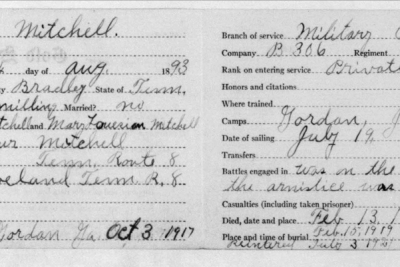 Mitchell.
day of Aug. 1893
Bradley State of Tenn.
milling Married? no
tchell and Mary Louisian Mitchell
Mitchell
Tenn. Route 8
eland Tenn R. 8
Gordon Ga. Oct 3 1917
Branch of service Military
Company B 306 Regiment
Rank on entering service Privat
Honors and citations
Where trained
Camps Gordon,
Date of sailing July 19
Transfers
Battles engaged in was on the
the armistice was
Casualties (including taken prisoner)
Died, date and place Feb 13, 1
Place and time of burial Feb. 15, 1919